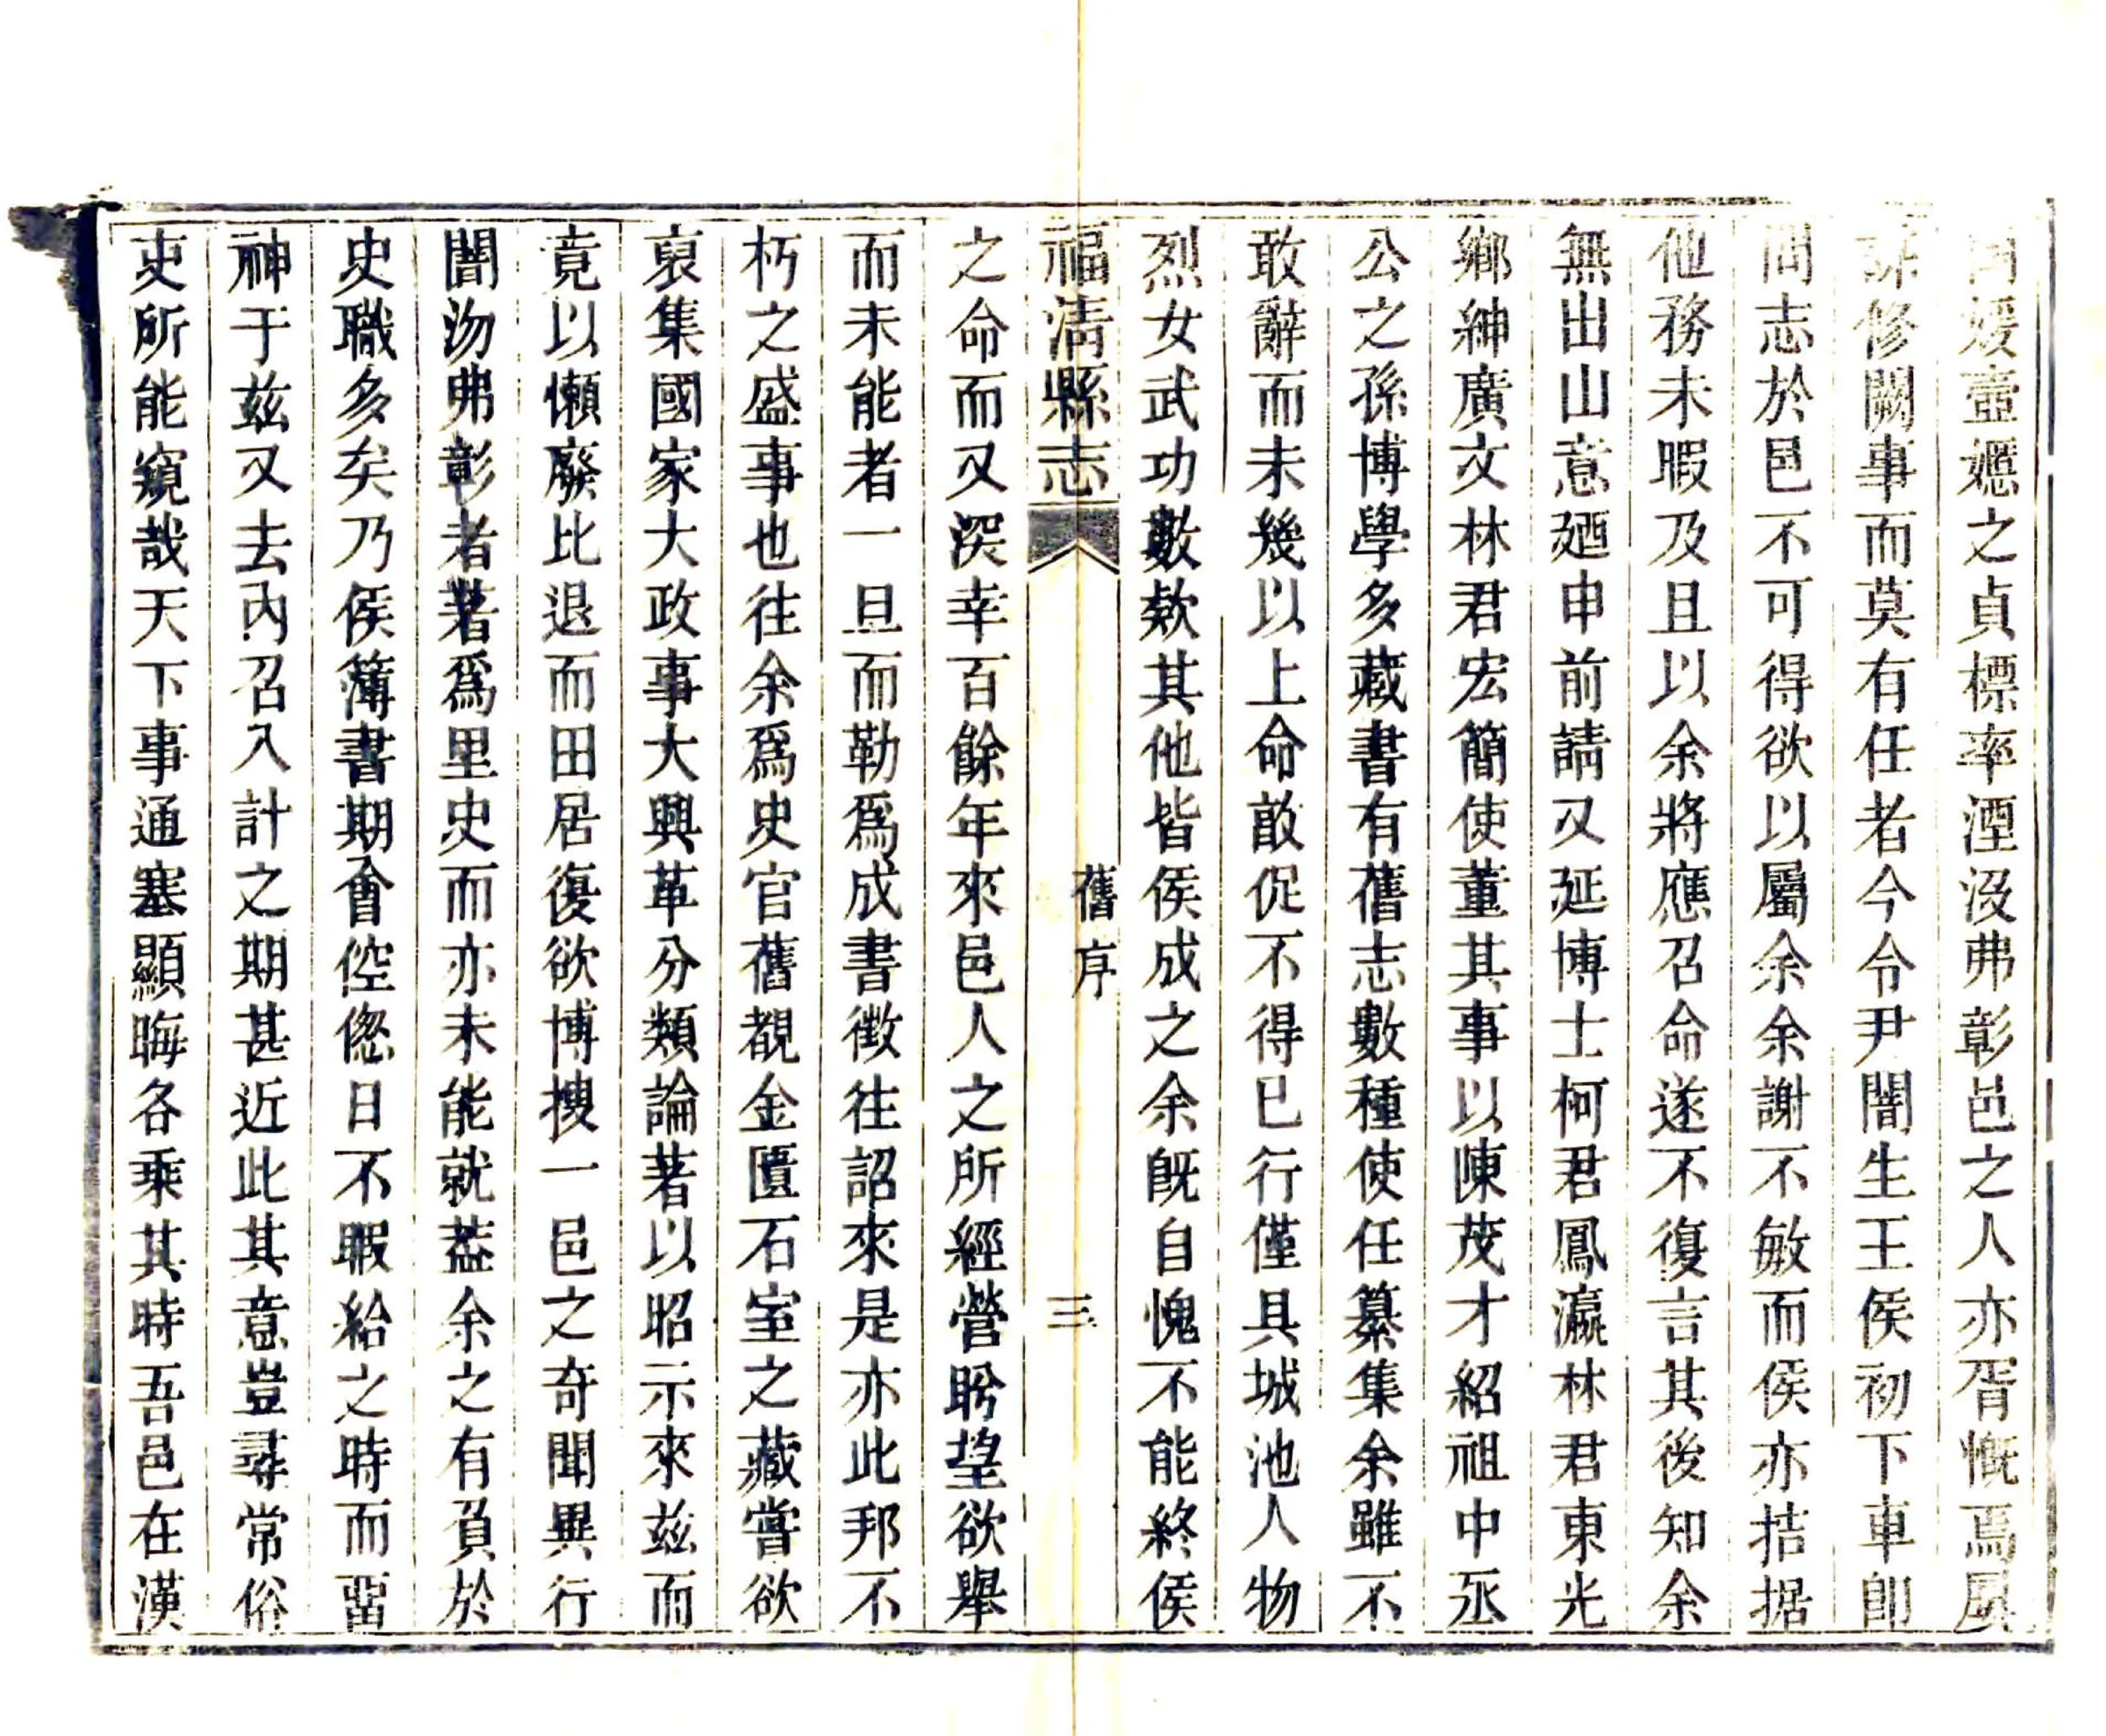 媛壼嫕之貞標率湮沒弗彰邑之人亦胥慨焉屢
修闕事而莫有任者今令尹闇生王侯初下車卽
問志於邑不可得欲以屬余余謝不敏而侯亦拮据
他務未暇及且以余將應召命遂不復言其後知余
無出山意廼申前請又延博士柯君鳳瀛林君東光
鄉紳廣文林君宏簡使董其事以陳茂才紹祖中丞
公之孫博學多藏書有舊志數種使任纂集余雖不
敢辭而未幾以上命敢促不得已行僅具城池人物
烈女武功數欵其他皆侯成之余旣自愧不能終侯
福淸縣志
舊序
三
之命而又深幸百餘年來邑人之所經營盻望欲舉
而未能者一旦而勒爲成書徵往詔來是亦此邦不
朽之盛事也往余爲史官舊覩金匱石室之藏嘗欲
裒集國家大政事大興革分類論著以昭示來兹而
竟以懶廢比退而田居復欲博搜一邑之奇聞異行
闇沕弗彰者著爲里史而亦未能就葢余之有負於
史職多矣乃侯簿書期會倥偬日不暇給之時而畱
神于兹又去內召入計之期甚近此其意豈尋常俗
吏所能窺哉天下事通塞顯晦各乘其時吾邑在漢